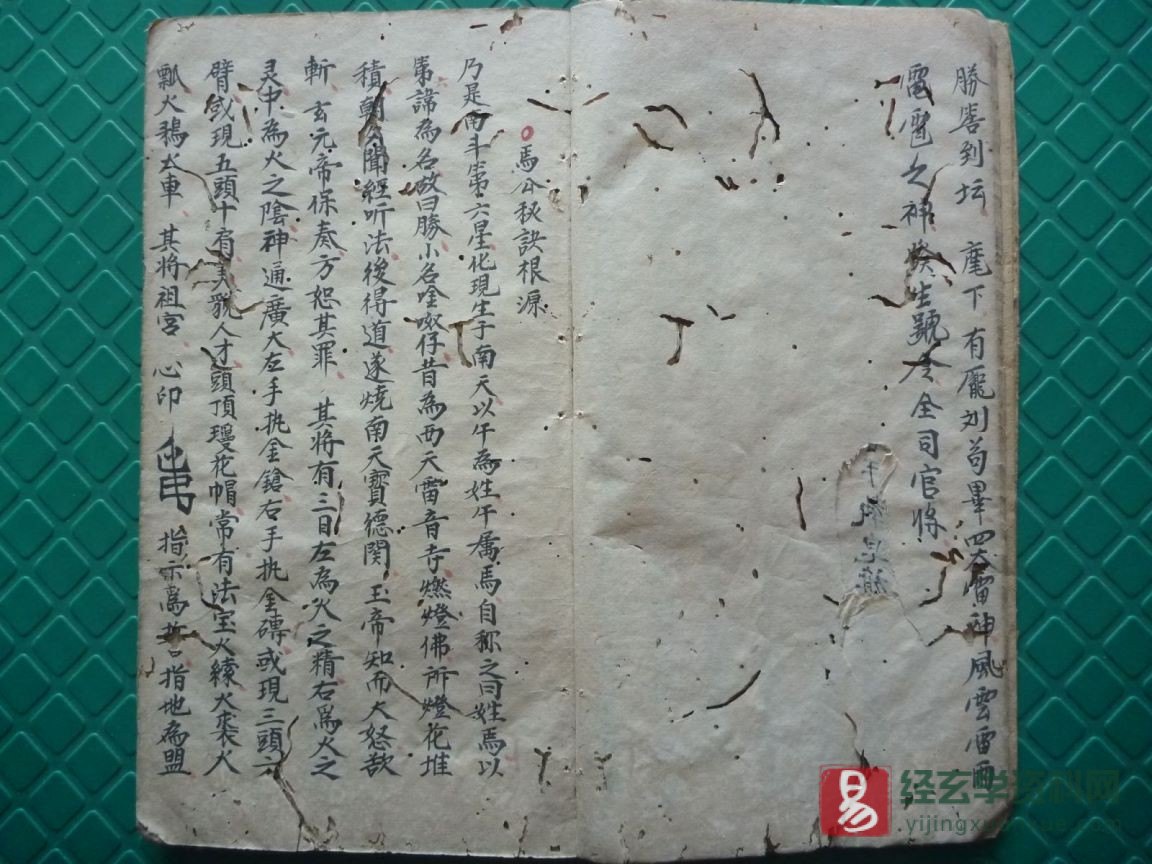 勝善到坛 麾下有龐刘苟畢四大雷神風雲雷雨
雷電之神發生號令全司官將
馬公秘訣根源
乃是南斗第六星化現生于南天以午為姓午属馬自称之曰姓馬以
第諦為名故曰勝小名仔昔為西天雷音寺燃燈佛所燈花堆
積朝久聞經听法後得道遂燒南天寶德関 玉帝知而大怒欲
斬 玄元帝保奏方恕其罪 其將有三目左為火之精右為火之
灵中為火之陰神通廣大左手执金鎗右手执金磚或現三頭六
臂或現五頭十肩美貌人才頭頂瓊花帽常有法宝火索火袋火
瓢火鵶火車 其将祖宫 心印 指示為 指地為盟
易
经玄学资料网
yijingx